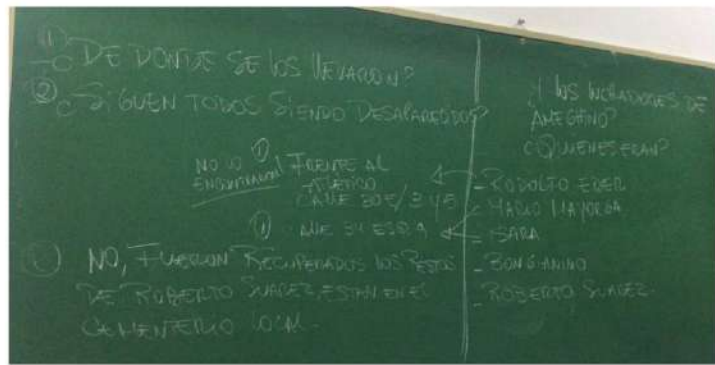 ① ¿DE DONDE SE LOS LLEVARON?
② ¿SIGUEN TODOS SIENDO DESAPARECIDOS?
NO LO ENCONTRARON
① FRENTE AL
ATLETICO
CALLE 30 E/ 3 Y 5
① CALLE 34 ESQ 9
② NO, FUERON RECUPERADOS LOS RESTOS
DE ROBERTO SUAREZ, ESTAN EN EL
CEMENTERIO LOCAL.
LOS DE
AMEGHINO?
¿QUIENES ERAN?
- RODOLFO
- MARIO MAYORGA
- SARA
- BONGIANINO
- ROBERTO SUAREZ.